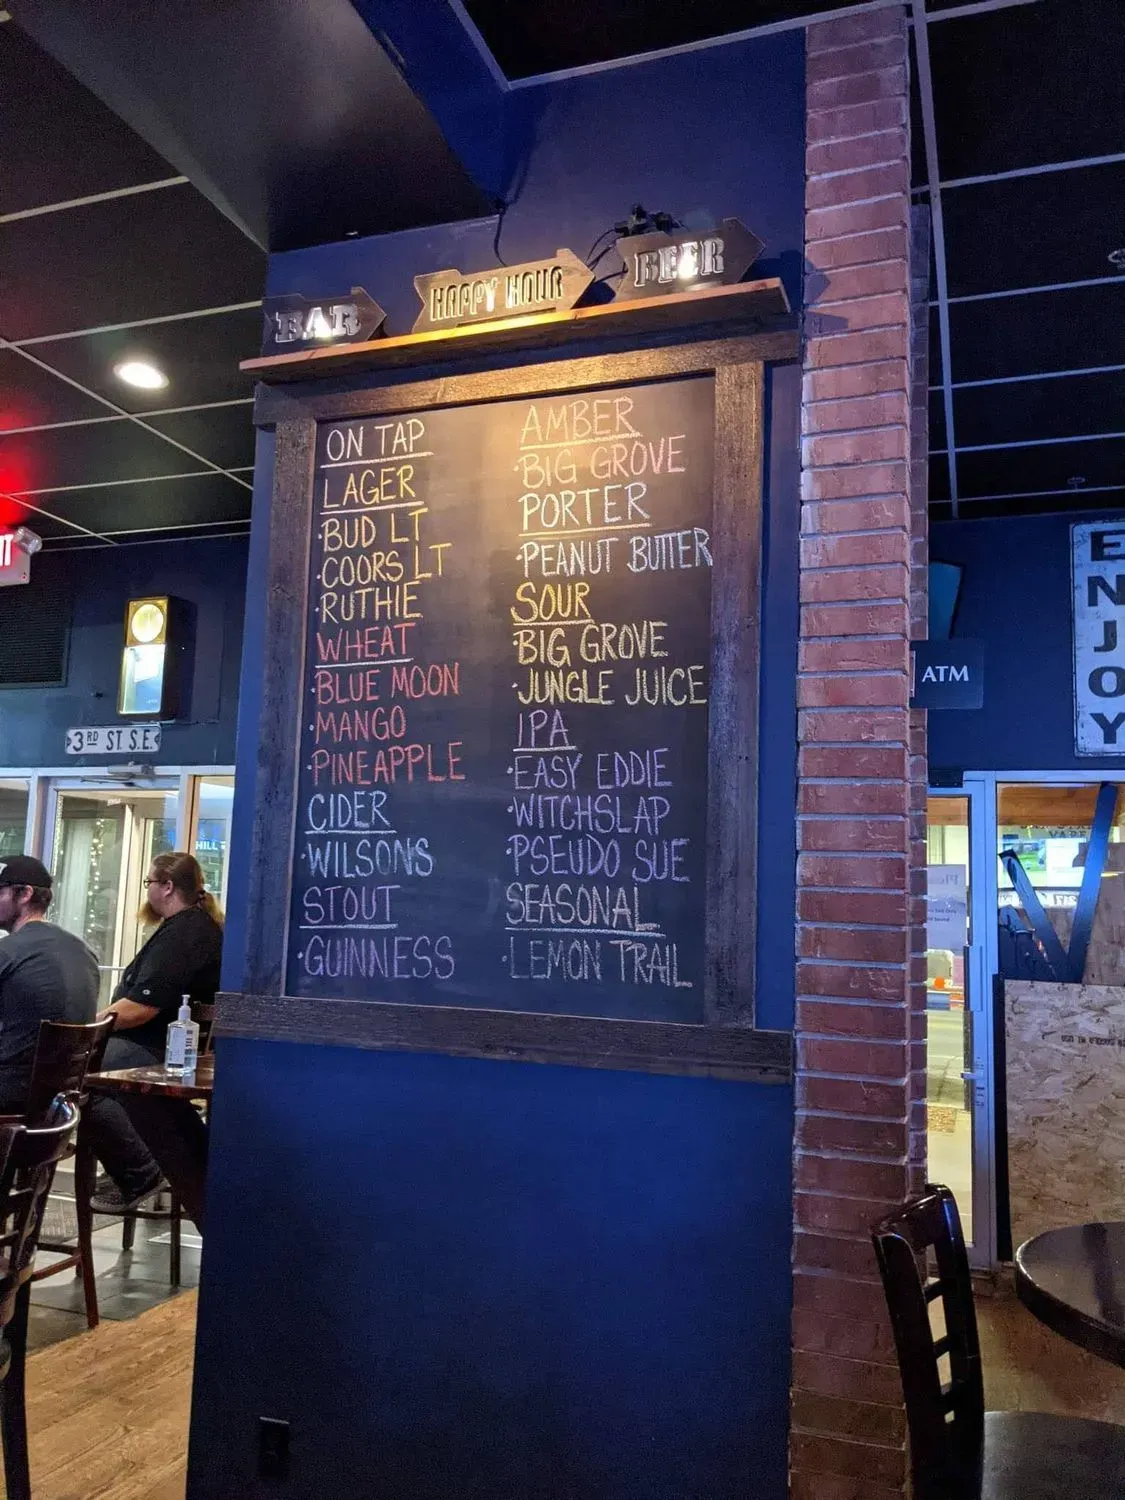 BAR
HAPPY HOUR
BEER
ON TAP
LAGER
·BUD LT
·COORS LT
·RUTHIE
WHEAT
·BLUE MOON
·MANGO
·PINEAPPLE
CIDER
·WILSONS
STOUT
·GUINNESS
AMBER
·BIG GROVE
PORTER
·PEANUT BUTTER
SOUR
·BIG GROVE
·JUNGLE JUICE
IPA
·EASY EDDIE
·WITCHSLAP
·PSEUDO SUE
SEASONAL
·LEMON TRAIL
3RD ST. S.E.
HILL
ATM
ENJOY
VAPE